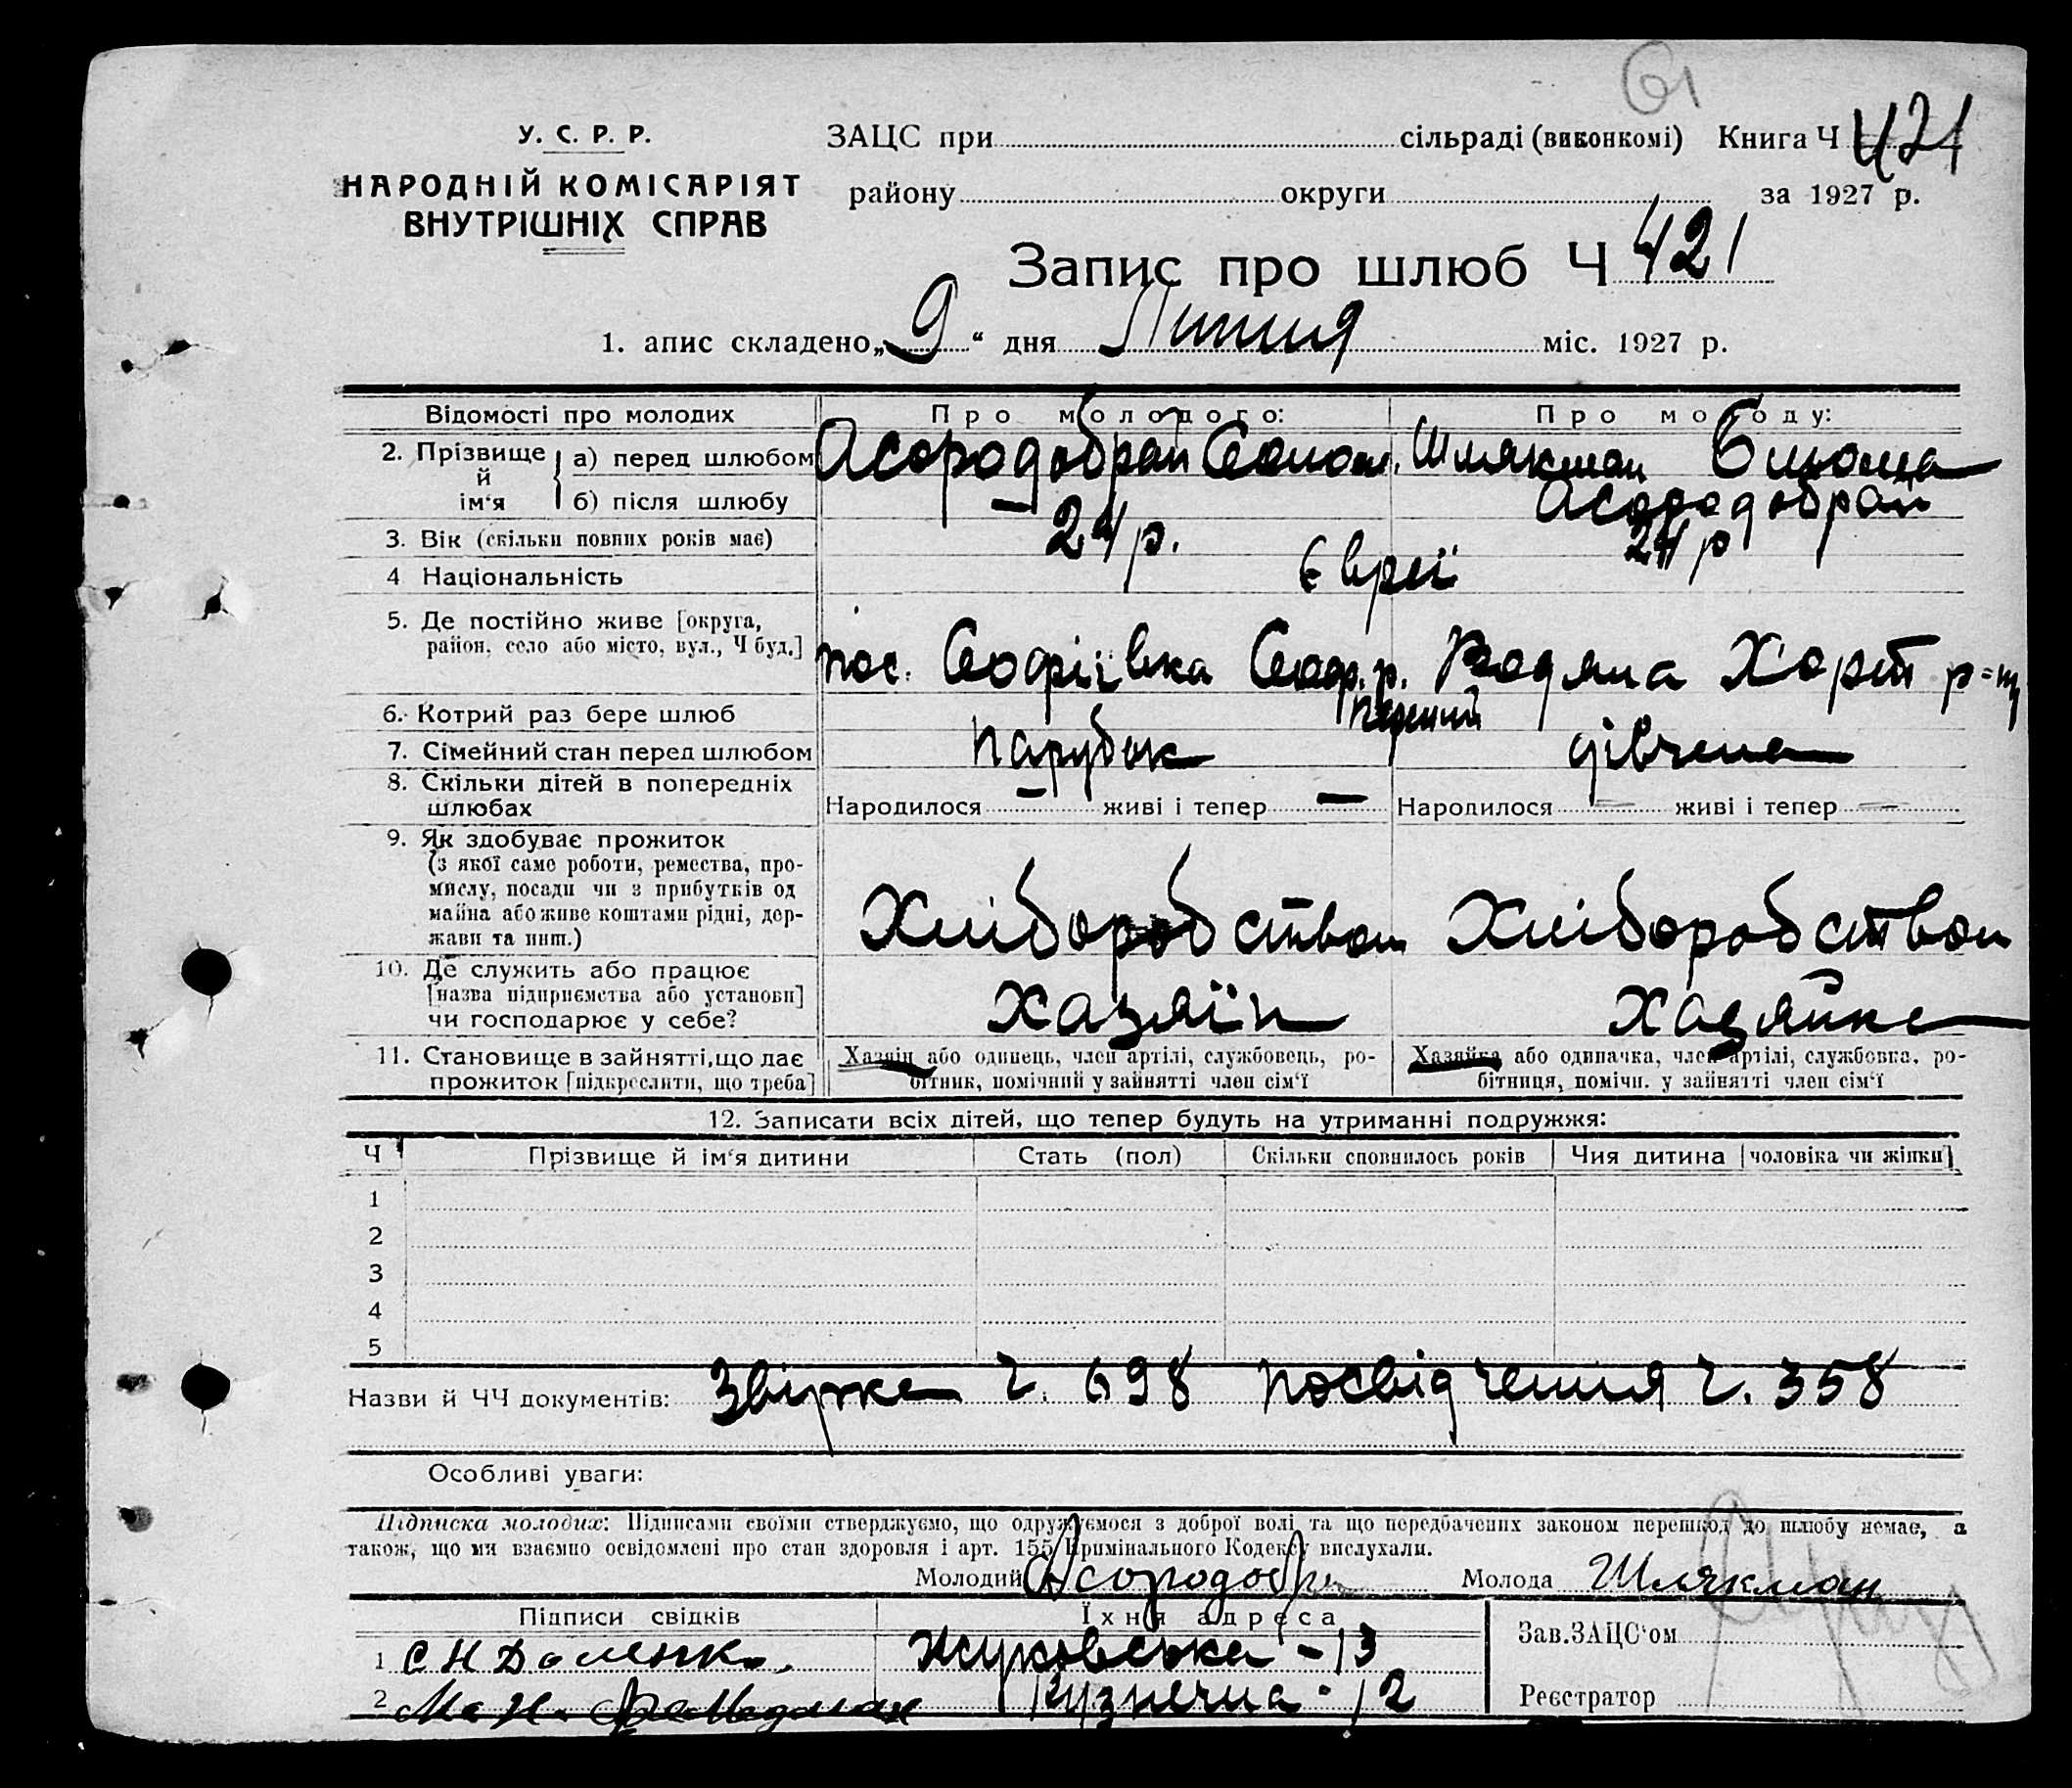 61
У. С. Р. Р.
НАРОДНІЙ КОМІСАРІЯТ
ВНУТРІШНІХ СПРАВ
ЗАЦС при сільраді (виконкомі) Книга Ч 421
району округи за 1927 р.
Запис про шлюб Ч 421
1. апис складено „9“ дня Липня міс. 1927 р.
Відомості про молодих
Про молодого:
Про молоду:
2. Прізвище й ім‘я
а) перед шлюбом
Асородобрай Солом.
Шлякман Блюма
б) після шлюбу
—
Асородобрай
3. Вік (скільки повних років має)
24 р.
24 р
4 Національність
Євреї
5. Де постійно живе [округа,
район, село або місто, вул., Ч буд.]
пос. Софіївка Соф. р.
Водяна Хорт р=ну
6. Котрий раз бере шлюб
перший
7. Сімейний стан перед шлюбом
парубок
дівчина
8. Скільки дітей в попередніх
шлюбах
Народилося — живі і тепер —
Народилося — живі і тепер —
9. Як здобуває прожиток
(з якої саме роботи, ремества, про-
мислу, посади чи з прибутків од
майна або живе коштами рідні, дер-
жави та инш.)
Хліборобством
Хліборобством
10. Де служить або працює
[назва підприємства або установи]
чи господарює у себе?
Хазяїн
Хазяйка
11. Становище в зайнятті, що дає
прожиток [підкреслити, що треба]
Хазяїн або одинець, член артілі, службовець, ро-
бітник, помічний у зайнятті член сім‘ї
Хазяйка або одиначка, член артілі, службовка, ро-
бітниця, помічн. у зайнятті член сім‘ї
12. Записати всіх дітей, що тепер будуть на утриманні подружжя:
Ч Прізвище й ім‘я дитини Стать (пол) Скільки сповнилось років Чия дитина [чоловіка чи жінки]
1
2
3
4
5
Назви й ЧЧ документів: Звірка ч. 698 посвідчення ч. 358
Особливі уваги:
Підписка молодих: Підписами своїми стверджуємо, що одружуємося з доброї волі та що передбачених законом перешкод до шлюбу немає, а
також, що ми взаємно освідомлені про стан здоровля і арт. 155 Кримінального Кодексу вислухали.
Молодий Асородобра Молода Шлякман
Підписи свідків
Їхня адреса
Зав. ЗАЦС‘ом
1 С Н Доленко
Жуковська - 13
2
Кузнечна - 12
Реєстратор